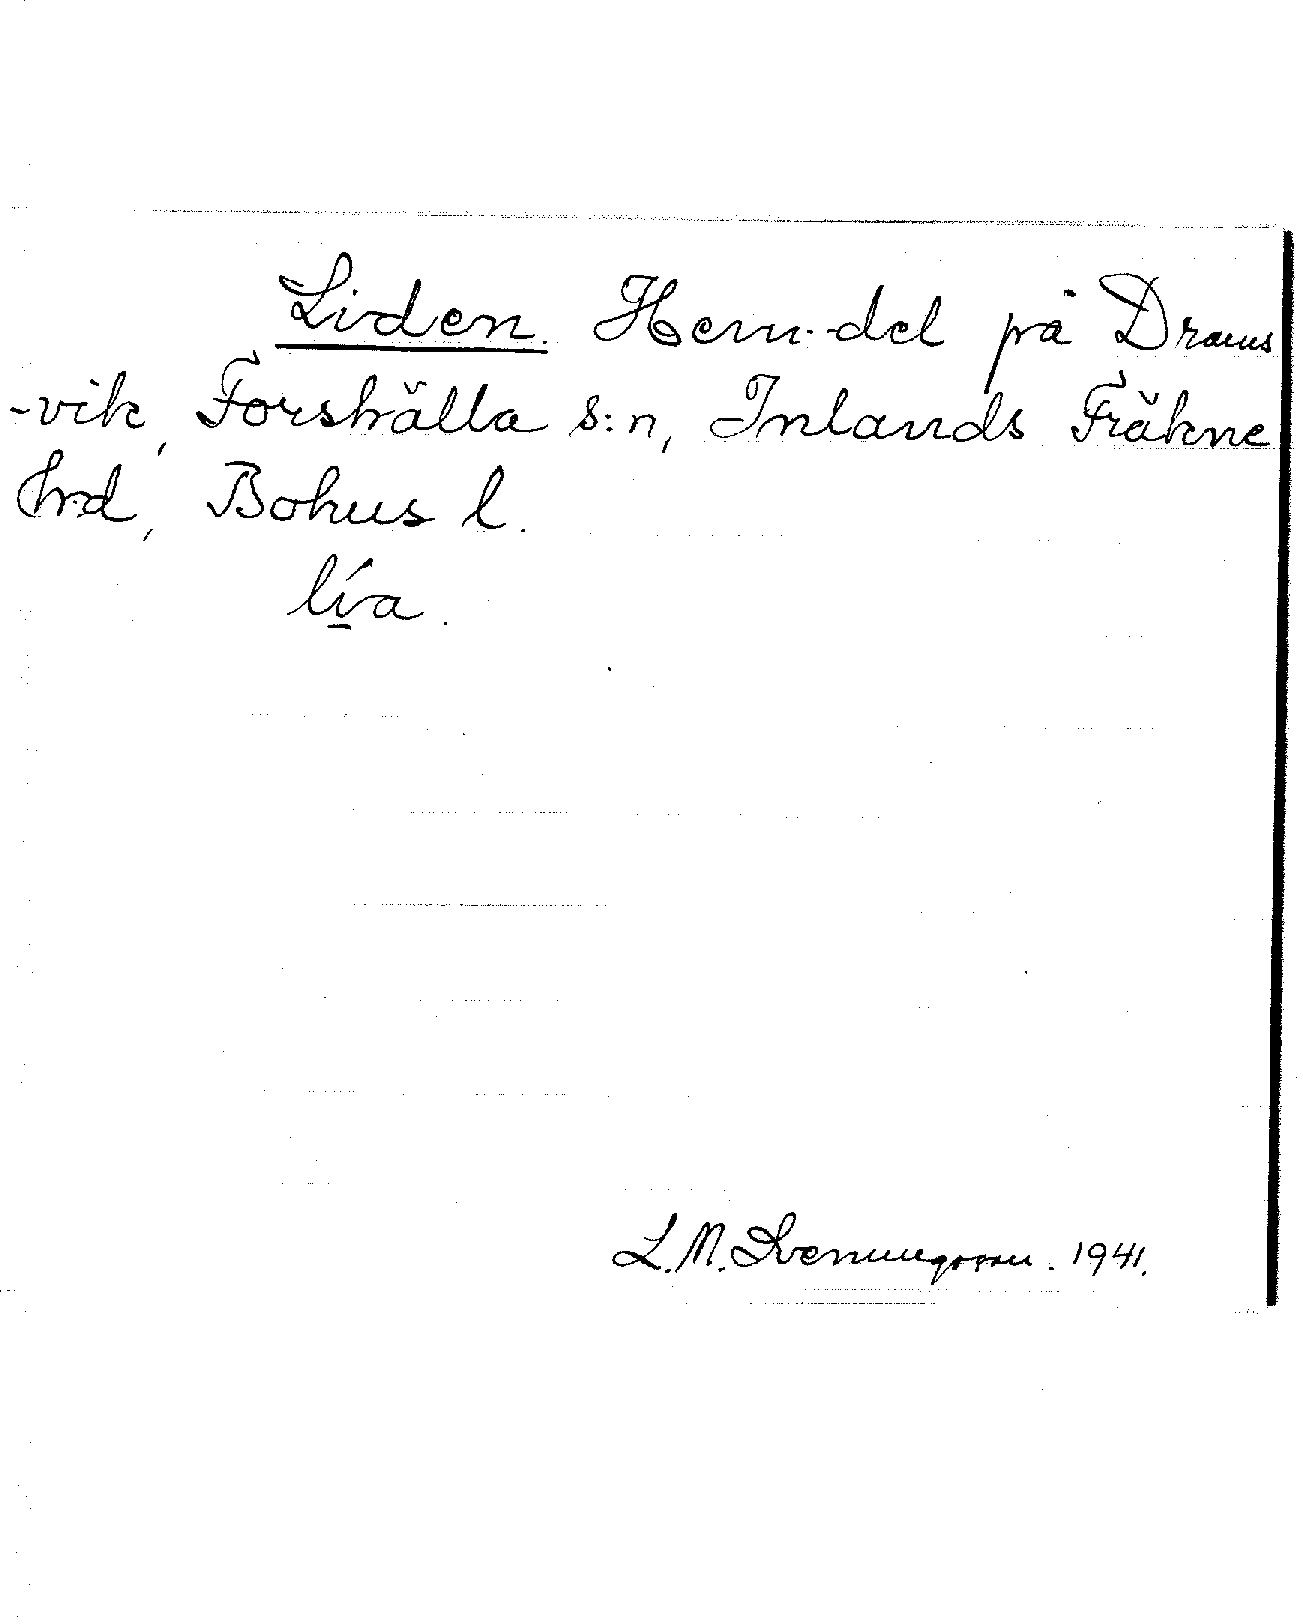 Liden. Hem.-del på Drams
-vik, Forshälla s:n, Inlands Fräkne
hrd, Bohus l.
lí̱a.
L. M. Svenungsson. 1941.